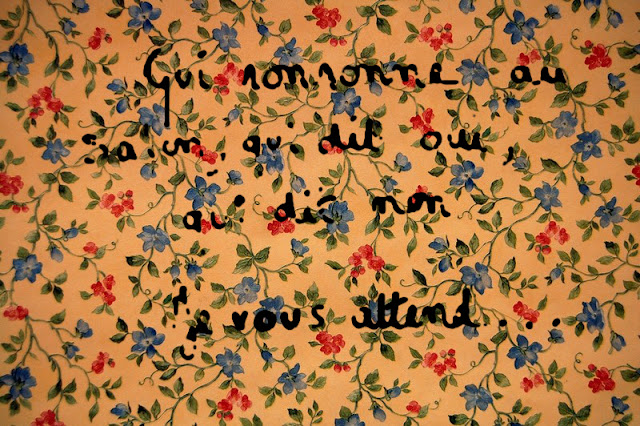 Qui ronronne au
qui dit oui,
qui dit non
je vous attend....